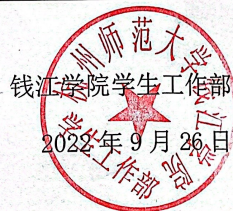 钱江学院学生工作部
2022年9月26日
杭州师范大学钱江学院
学生工作部